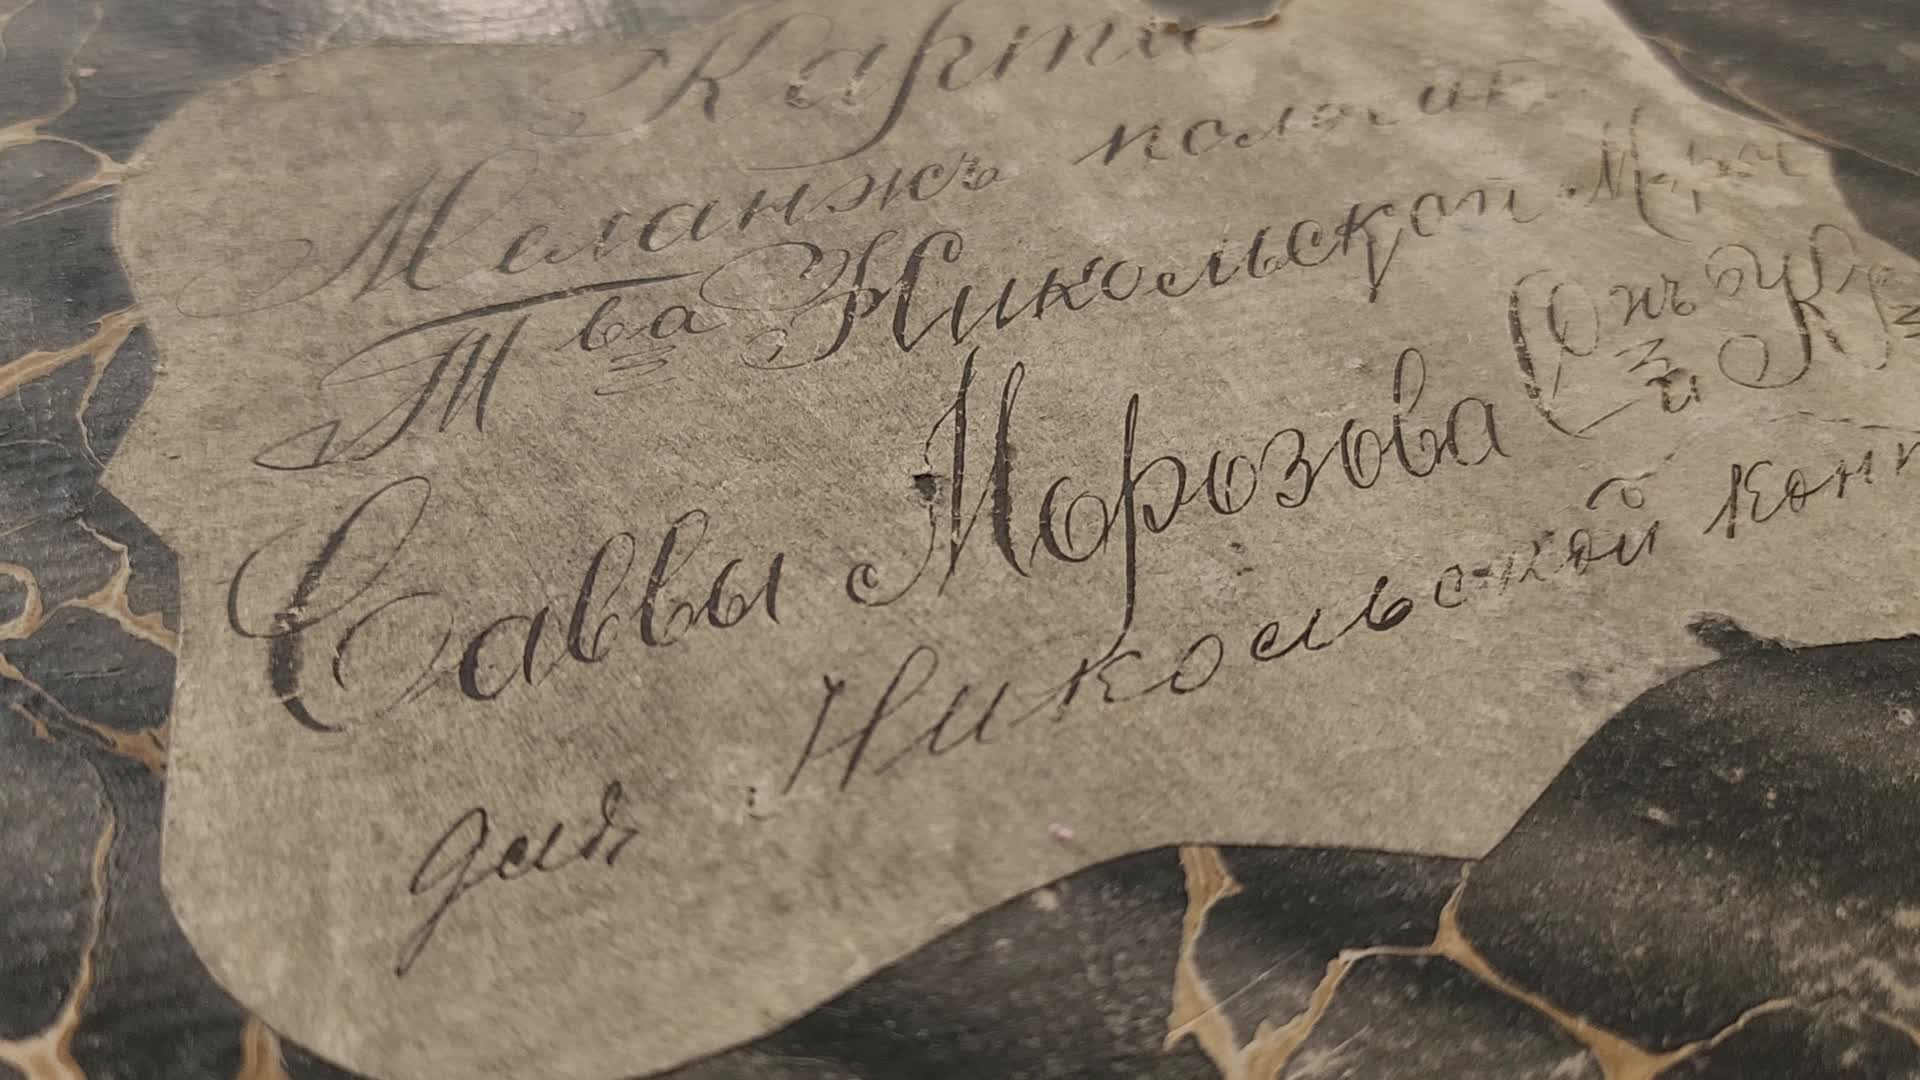 Карти
Меланжъ
Тва Никольской Ману
Саввы Морозова Сынъ и К
для Никольской конт